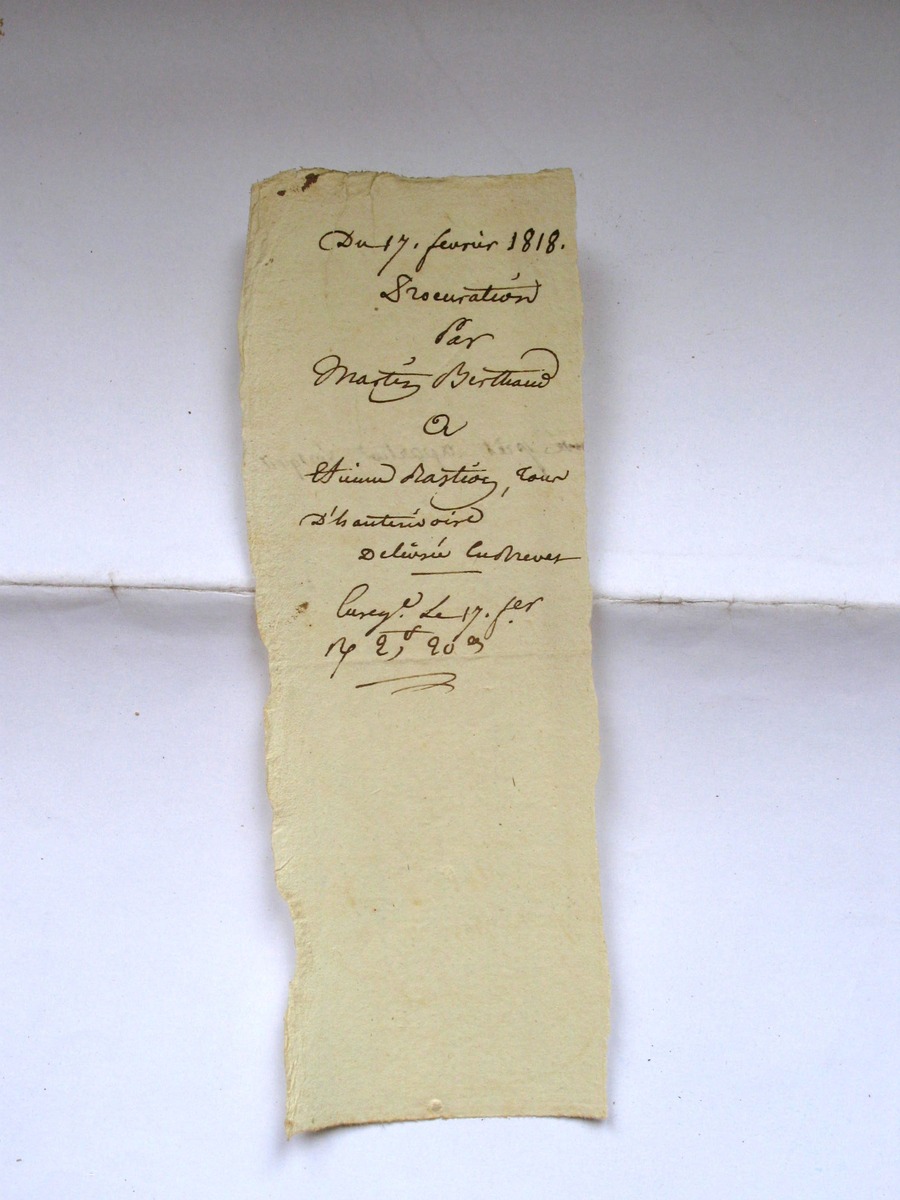 Du 17. fevrier 1818.
Procuration
Par
Martin Berthaud
A
Etienne Rastoin, tous
D'hauterivoire
Delivrée En Brevet
Enreg.é Le 17. f.er
R/ 2f 20 c